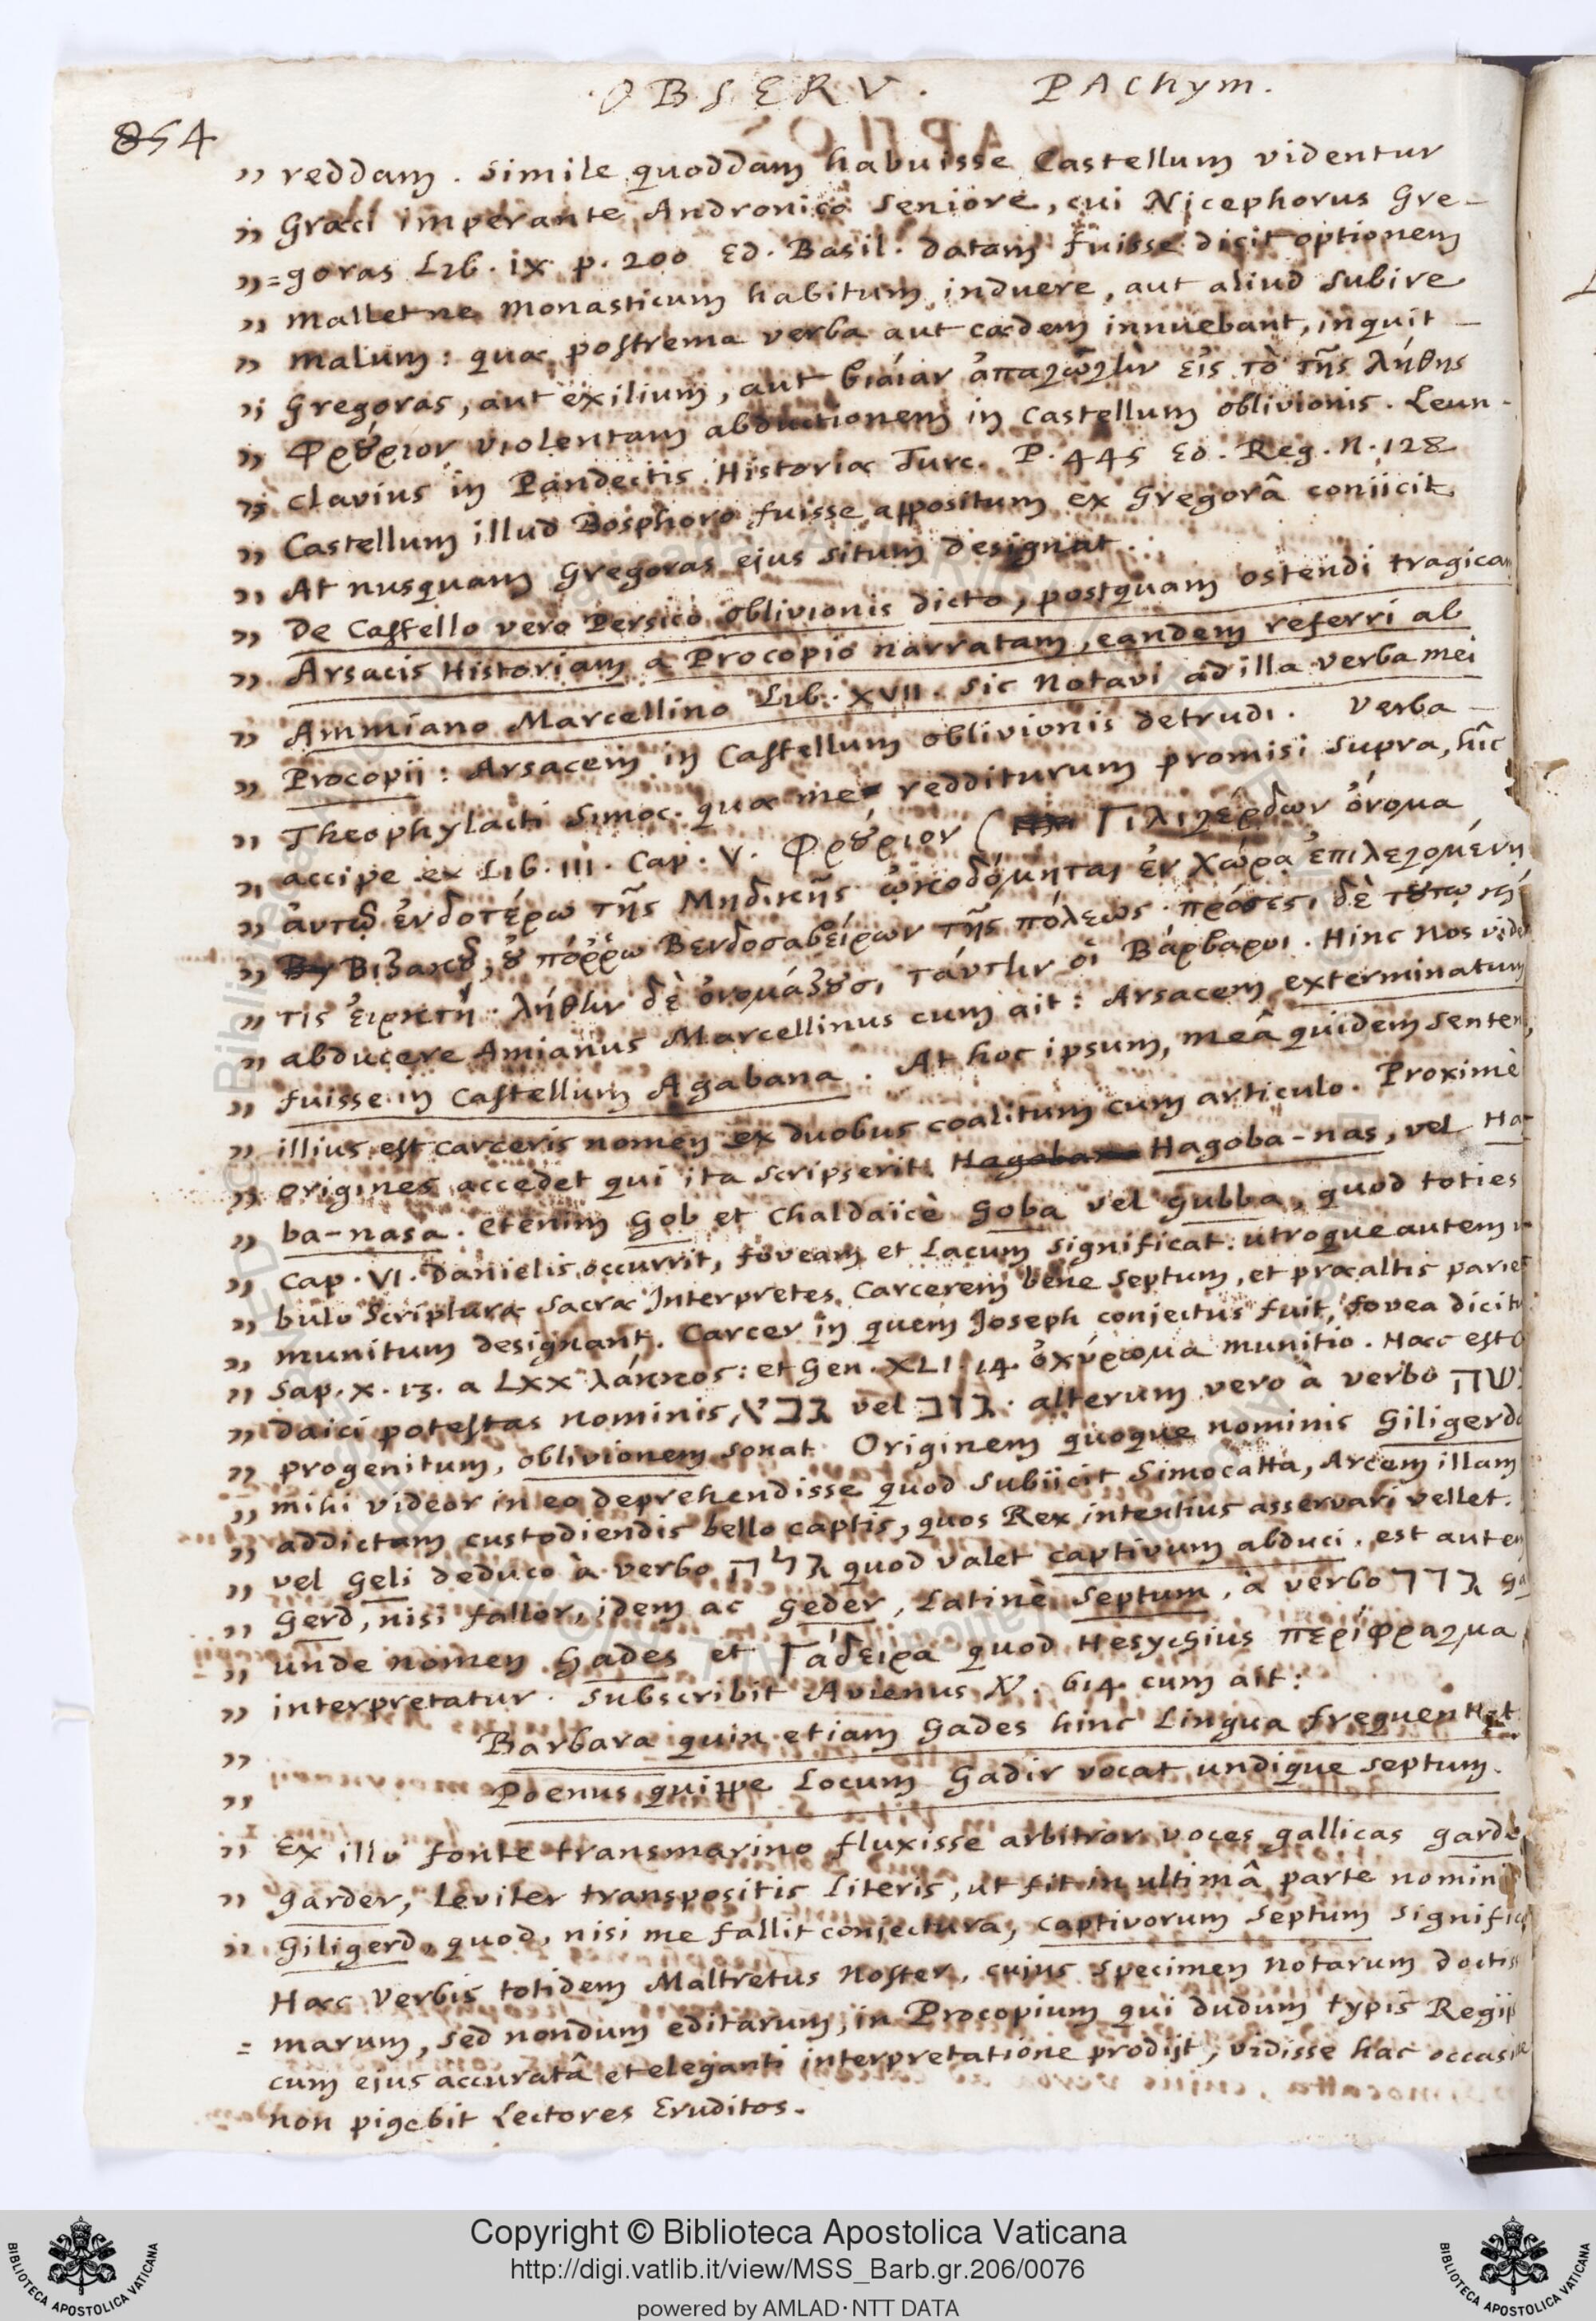 OBSERV. PAchym.
854
,, reddam. Simile quoddam habuisse Castellum videntur
,, Græci imperante Andronico Seniore, cui Nicephorus Gre-
,, =goras Lib. ix p. 200 Ed. Basil. datam fuisse dicit optionem
,, malletne monasticum habitum induere, aut aliud subire
,, malum: quæ postrema verba aut cædem innuebant, inquit
,, Gregoras, aut exilium, aut βιάιαν ἀπαγωγὴν εἰς τὸ τῆς λήθης
,, Φρούριον violentam abductionem in Castellum oblivionis. Leun-
,, clavius in Pandectis Historiæ Turc. P. 445 Ed. Reg. N. 128
,, Castellum illud Bosphoro fuisse appositum ex Gregorâ coniicit.
,, At nusquam Gregoras ejus situm designat.
,, De Castello vero Persico oblivionis dicto, postquam ostendi tragicam
,, Arsacis Historiam a Procopio narratam, eandem referri ab
,, Ammiano Marcellino Lib. XVII. sic Notavi ad illa verba mei
,, Procopii: Arsacem in Castellum oblivionis detrudi. Verba
,, Theophylacti Simoc. quæ me redditurum promisi supra, hîc
,, accipe ex Lib. III. Cap. V. Φρούριον ( Γιλιγέρδων ὄνομα
,, ἀυτῷ ἐνδοτέρω τῆς Μηδικῆς ᾠκοδόμηται ἐν χώρᾳ ἐπιλεγομένῃ
,, Βιζακοῦ, οὐ πόῤῥω Βενδοσαβείρων τῆς πόλεως. πρόσεστι δὲ τούτῳ καὶ
,, τις ἑιρκτή. λήθην δὲ ὀνομάζουσι ταύτην οἱ Βάρβαροι. Hinc nos vide
,, abducere Amianus Marcellinus cum ait: Arsacem exterminatum
,, fuisse in Castellum Agabana. At hoc ipsum, meâ quidem senten
,, illius est carceris nomen ex duobus coalitum cum articulo. Proximè
,, origines accedet qui ita scripserit Hagoba-nas, vel Ha-
,, ba-nasa. etenim Gob et Chaldaïcè Goba vel Gubba, quod toties
,, Cap. VI. Danielis occurrit, foveam et Lacum significat: utroque autem
,, bulo Scripturæ sacræ Interpretes Carcerem bene septum, et præaltis parie
,, munitum designant. Carcer in quem Joseph conjectus fuit, fovea dicitu
,, Sap. X. 13. a LXX λάκκος: et Gen. XLI. 14. ὀχύρωμα munitio. Hæc est
,, daici potestas nominis גבא vel גוב. alterum vero à verbo נשה
,, progenitum, oblivionem sonat. Originem quoque nominis Giligerd
,, mihi videor in eo deprehendisse quod subiicit Simocatta, Arcem illam
,, addictam custodiendis bello captis, quos Rex intentius asservari vellet.
,, vel Geli deduco à verbo גלה quod valet captivum abduci. est autem
,, Gerd, nisi fallor, idem ac Geder, Latinè Septum, à verbo גדר Ga
,, unde nomen Gades et Γάδειρα quod Hesychius περίφραγμα
,, interpretatur. subscribit Avienus V. 614 cum ait:
,, Barbara quin etiam Gades hinc Lingua frequentat
,, Poenus quippe Locum Gadir vocat undique septum.
,, Ex illo fonte transmarino fluxisse arbitror voces gallicas garde
,, garder, Leviter transpositis Literis, ut fit in ultimâ parte nominis
,, Giligerd, quod, nisi me fallit conjectura, captivorum septum signific
Hæc Verbis totidem Maltretus Noster, cujus specimen Notarum doctis
= marum, sed nondum editarum, in Procopium qui dudum typis Regiis
cum ejus accuratâ et eleganti interpretatione prodijt, vidisse hac occasi
non pigebit Lectores Eruditos.
Copyright © Biblioteca Apostolica Vaticana
http://digi.vatlib.it/view/MSS_Barb.gr.206/0076
powered by AMLAD·NTT DATA
BIBLIOTECA APOSTOLICA VATICANA
BIBLIOTECA APOSTOLICA VATICANA